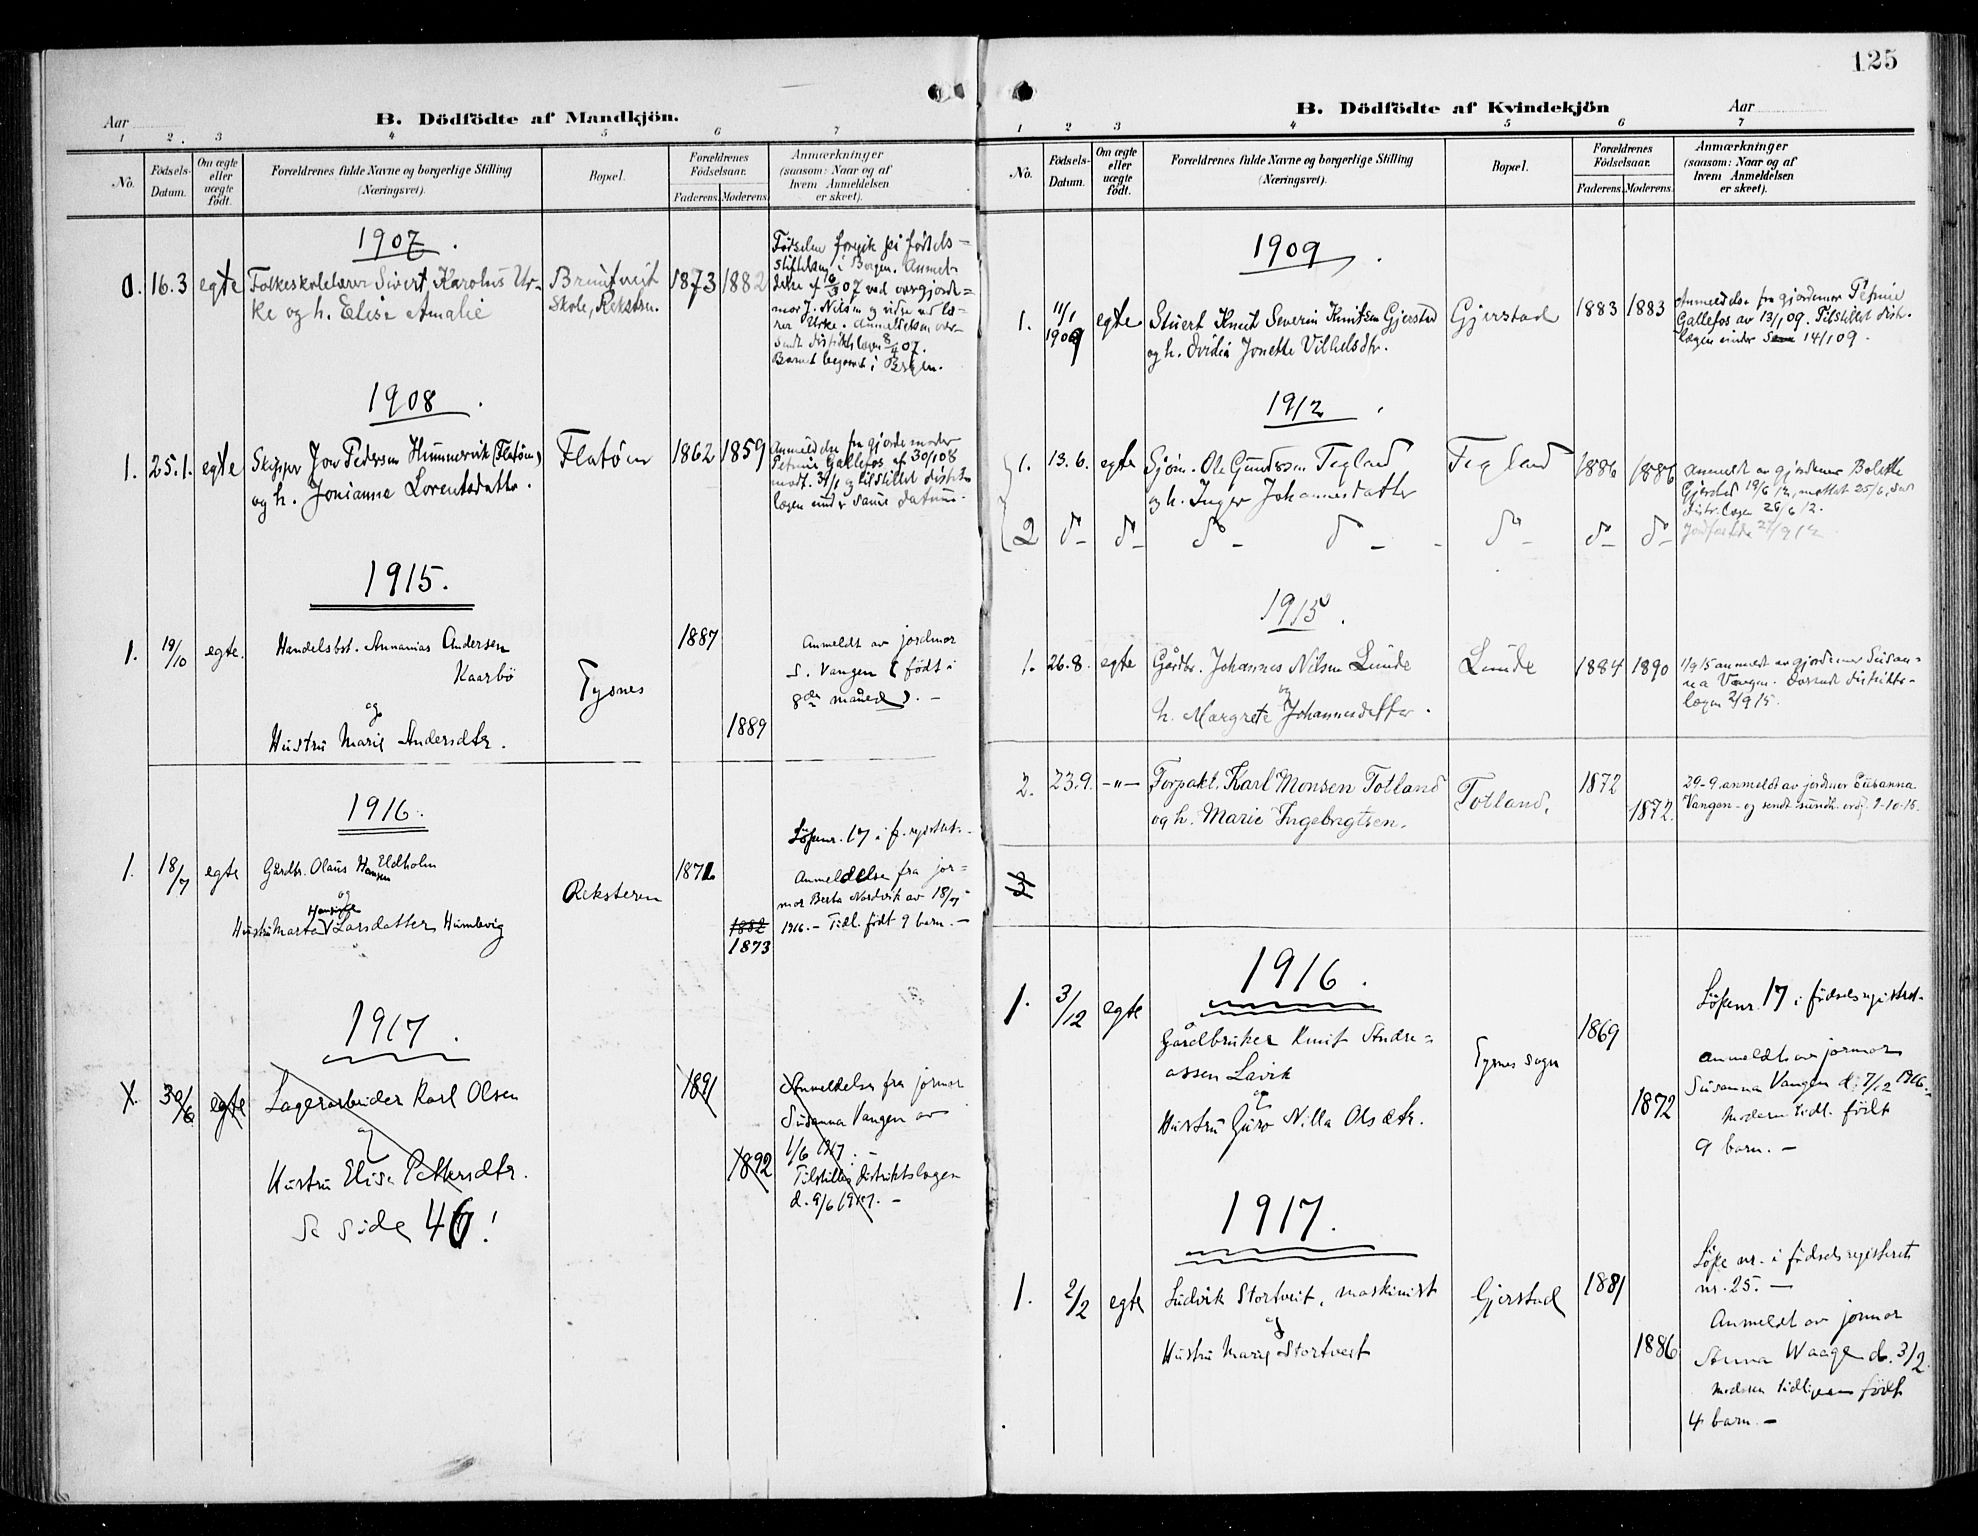 Aar
B. Dödfödte af Mandkjön.
1 2. 3 4 5 6 7
No.
Födsels-
Datum.
Om ægte
eller
uægte
födt.
Forældrenes fulde Navne og borgerlige Stilling
(Næringsvei).
Bopæl.
Forældrenes
Födselsaar.
Faderens. Moderens.
Anmærkninger
(saasom: Naar og af
hvem Anmeldelsen
er skeet).
1907.
0. 16.3 egte Folkeskolelærer Sivert Karolus Ur-
ke og h. Elise Amalie
Bruntveit
Skole, Reksteren
1873 1882
Fødselen foregik på fødsels-
stiftelsen i Bergen. Anmel-
delse af 16/3 07 ved overgjorde-
mor J. Nilsen og vidne ved læ-
rer Urke. Anmeldelsen over-
sendt distriktslægen 8/4 07.
Barnet begravet i Bergen.
1908.
1. 25.1. egte Skipper Jon Pedersen Hummervik (Flatøen)
og h. Jonianne Lorentsdatter.
Flatöen
1862 1859
Anmeldelse fra gjordemoder
Petrine Gallefos af 30/1 08
modt. 31/1 og tilstillet distrikts
lægen under samme datum.
1915.
1. 19/10 egte. Handelsbst. Annanias Andersen
Kaarbö
og
Hustru Marie Andersdtr.
Tysnes
1887
1889
Anmeldt av jordmor
S. Vangen (født i
8de måned). -
1916.
1. 18/7 egte Gårdbr. Olaus Hansen Eldholm
og
Hansine
Hustru Marta Larsdatter Humlevig
Reksteren
1871
1882
1873
Löpenr. 17 i f. registret.-
Anmeldelse fra jor-
mor Berta Nordvik av 18/7
1916.- Tidl. født 9 barn. -
1917.
1. 30/6 egte Lagerarbeider Karl Olsen
og
Hustru Elise Pettersdtr.
Se side 46!
1891
1892
Anmeldelse fra jormor
Susanna Vangen av
1/6 1917. -
Tilstillet distriktslægen
d. 9/6 1917. -
125
B. Dödfödte af Kvindekjön
Aar
1 2 3 4 5 6 7
No.
Födsels-
Datum.
Om ægte
eller
uægte
födt.
Forældrenes fulde Navne og borgerlige Stilling
(Næringsvei).
Bopæl.
Forældrenes
Födselsaar.
Faderens. Moderens.
Anmærkninger
(saasom: Naar og af
hvem Anmeldelsen
er skeet).
1909.
1. 11/1 1909 egte Stuert Knut Severin Knutsen Gjerstad
og h. Ovidia Jonette Vilhelsdtr.
Gjerstad
1883 1883
Anmeldelse fra gjordemor Petrine
Gallefos av 13/1 09. Tilstillet distr.
lægen under 14/1 09.
1912.
1. 13.6. egte Sjöm. Ole Gundersen Tegland
og h. Inger Johannesdatter
Tegland
1886 1886
Anmeldt av gjordemor Bolette
Gjerstad 19/6 12, mottat 25/6, sendt
distr. lægen 26/6 12.
Jordfæstede 27/9 12
2 do do do do do do do
1915.
1. 26.8. egte Gårdbr. Johannes Nilsen Lunde
og
h. Margrete Johannesdatter.
Lunde
1884 1890
1/9 15 anmeldt av gjordemor Susan-
na Vangen. Oversendt distrikts-
lægen 2/9 15.
2. 23.9. -"- Forpakt. Karl Monsen Totland
og h. Marie Ingebrigtsen.
Totland.
1872
1872.
29-9. anmeldt av jordmor Susanna
Vangen - og sendt sundh. ordf. 2-10-15.
3
1916.
1. 3/12 egte
Gårdbruker Knut Andre-
assen Lavik
og
Hustru Guro Nilla Olsdtr.
Tysnes sogn
1869
1872
Löpenr. 17 i födselsregistret-
anmeldt av jormor
Susanna Vangen d. 7/12 1916.-
Moderen tidl. födt
9 barn. -
1917.
1. 2/2 egte Ludvik Stortveit, maskinist
og
Hustru Marie Stortveit
Gjerstad
1881
1886
Löpe nr. i födselsregisteret
nr. 25. -
Anmeldt av jormor
Anna Waage d. 3/2.
Moderen tidligere födt
4 barn. -